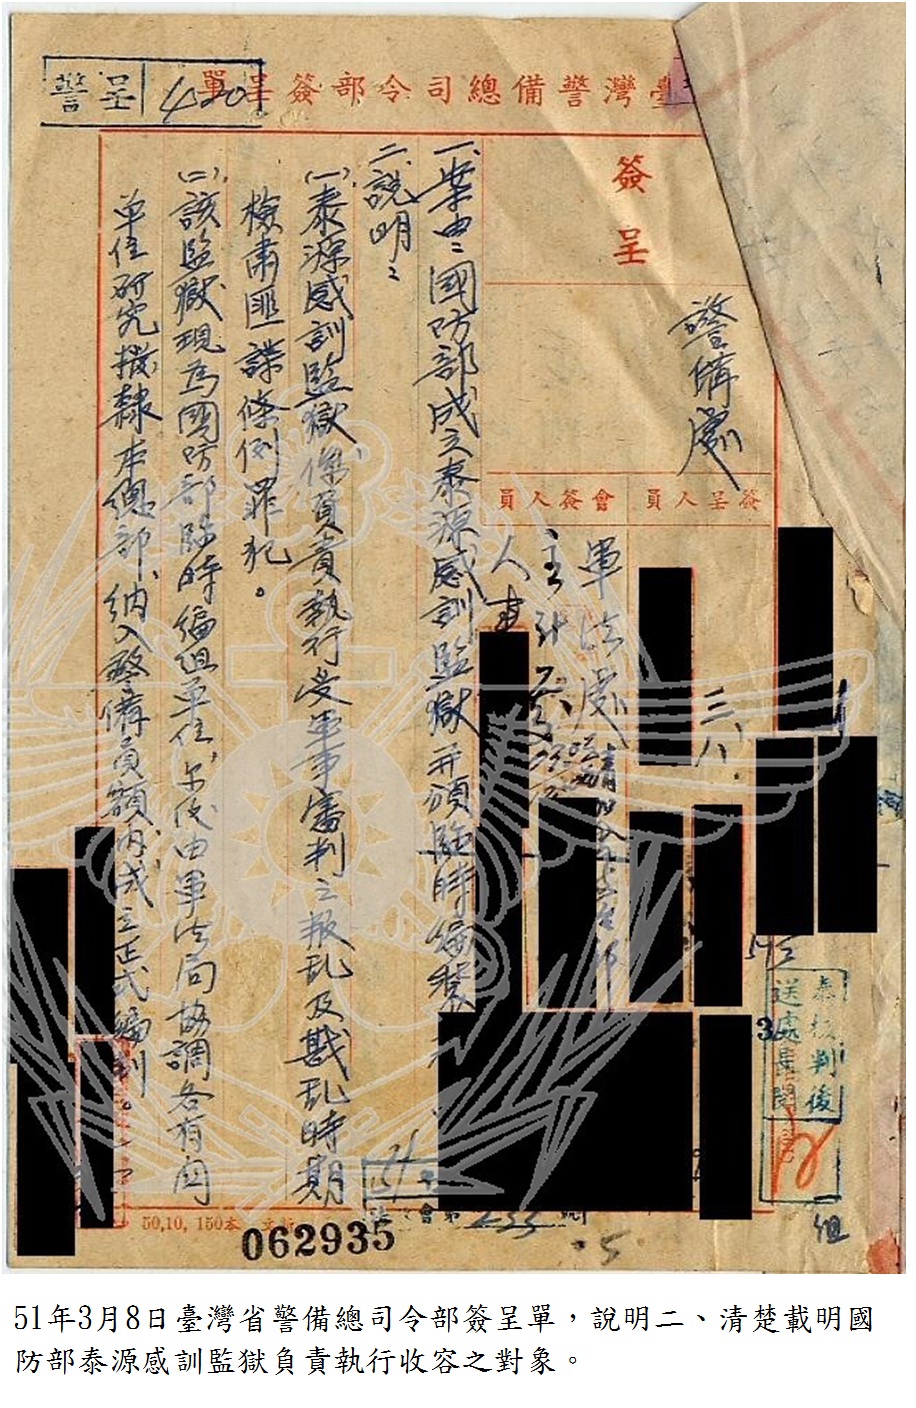 臺灣警備總司令部簽呈單
警呈 420
簽呈
警備處
簽呈人員
會簽人員
三、八
軍法處
主計處
人事
一、案由：國防部成立泰源感訓監獄并頒臨時編製
二、說明：
(一)、泰源感訓監獄，係負責執行受軍事審判之叛乱及戡乱時期
檢肅匪諜條例罪犯。
(二)、該監獄現為國防部臨時編組單位，尔後由軍法局協調各有関
單位研究撥隸本總部，納入警備員額內成立正式編制。
奉核判後
送處星閱
組
50,10, 150本
會第233號
062935
51年3月8日臺灣省警備總司令部簽呈單，說明二、清楚載明國
防部泰源感訓監獄負責執行收容之對象。